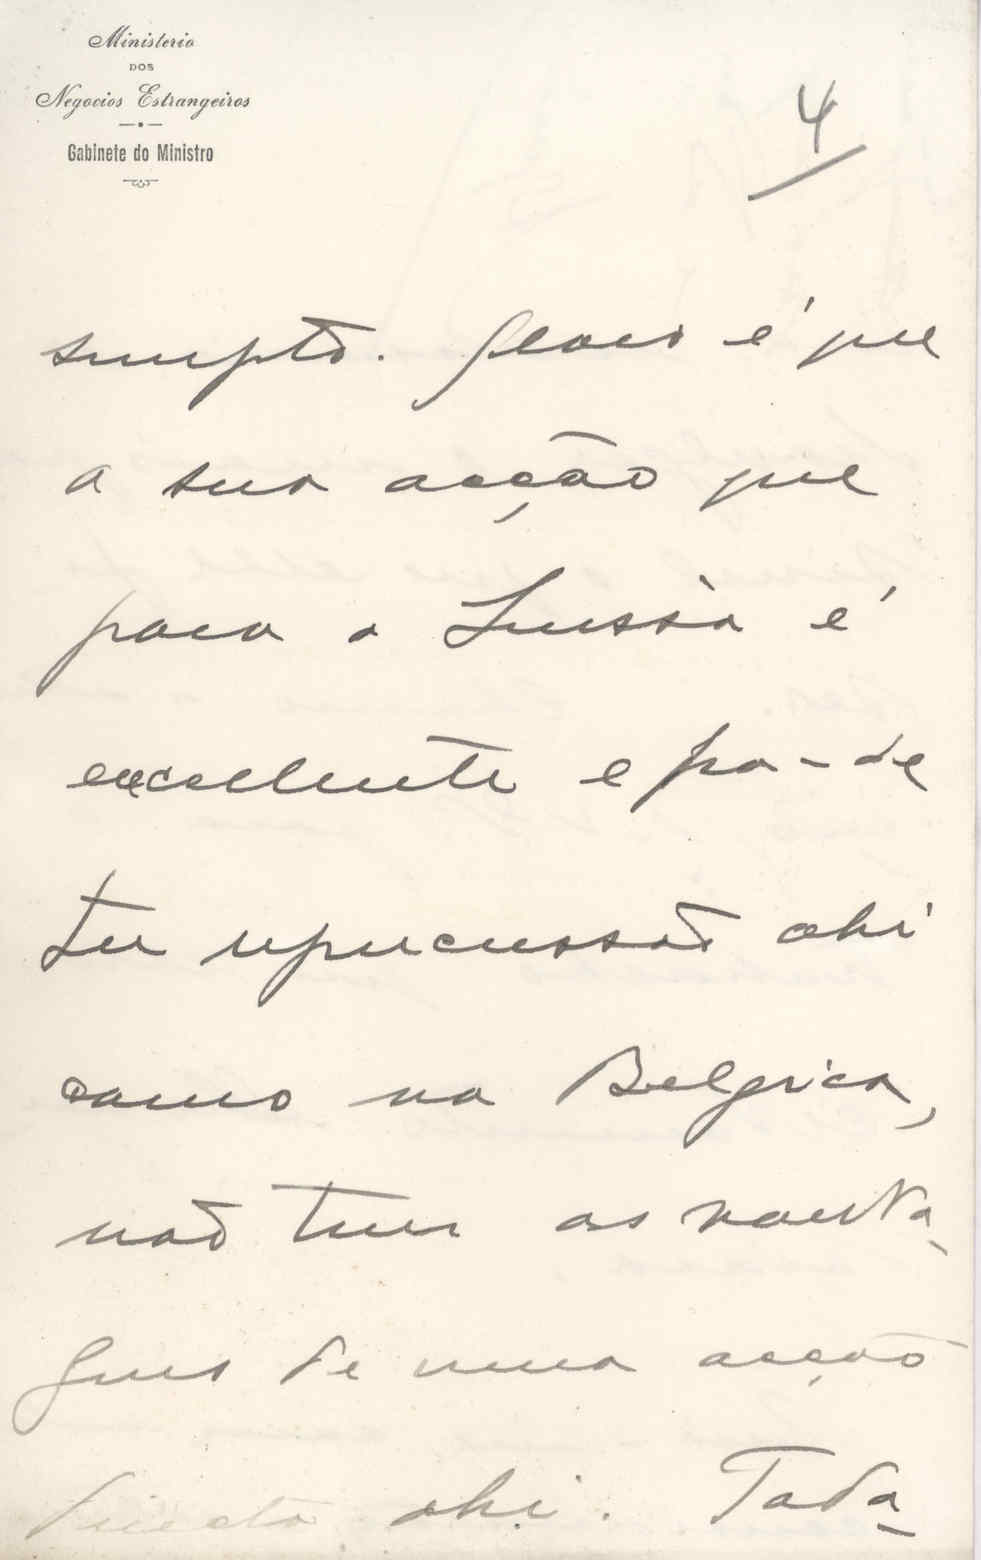 Ministerio
DOS
Negocios Estrangeiros
Gabinete do Ministro
4
sumpto. Claro é que
a sua acção que
para a Suissa é
excellente e pó-de
ter repercussão ahi
como na Belgica,
não tem as vanta-
gens de uma acção
directa ahi. Toda-